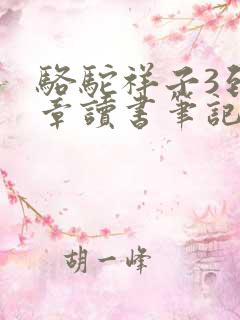 駱駝祥子3到
章讀書筆記
胡一峰